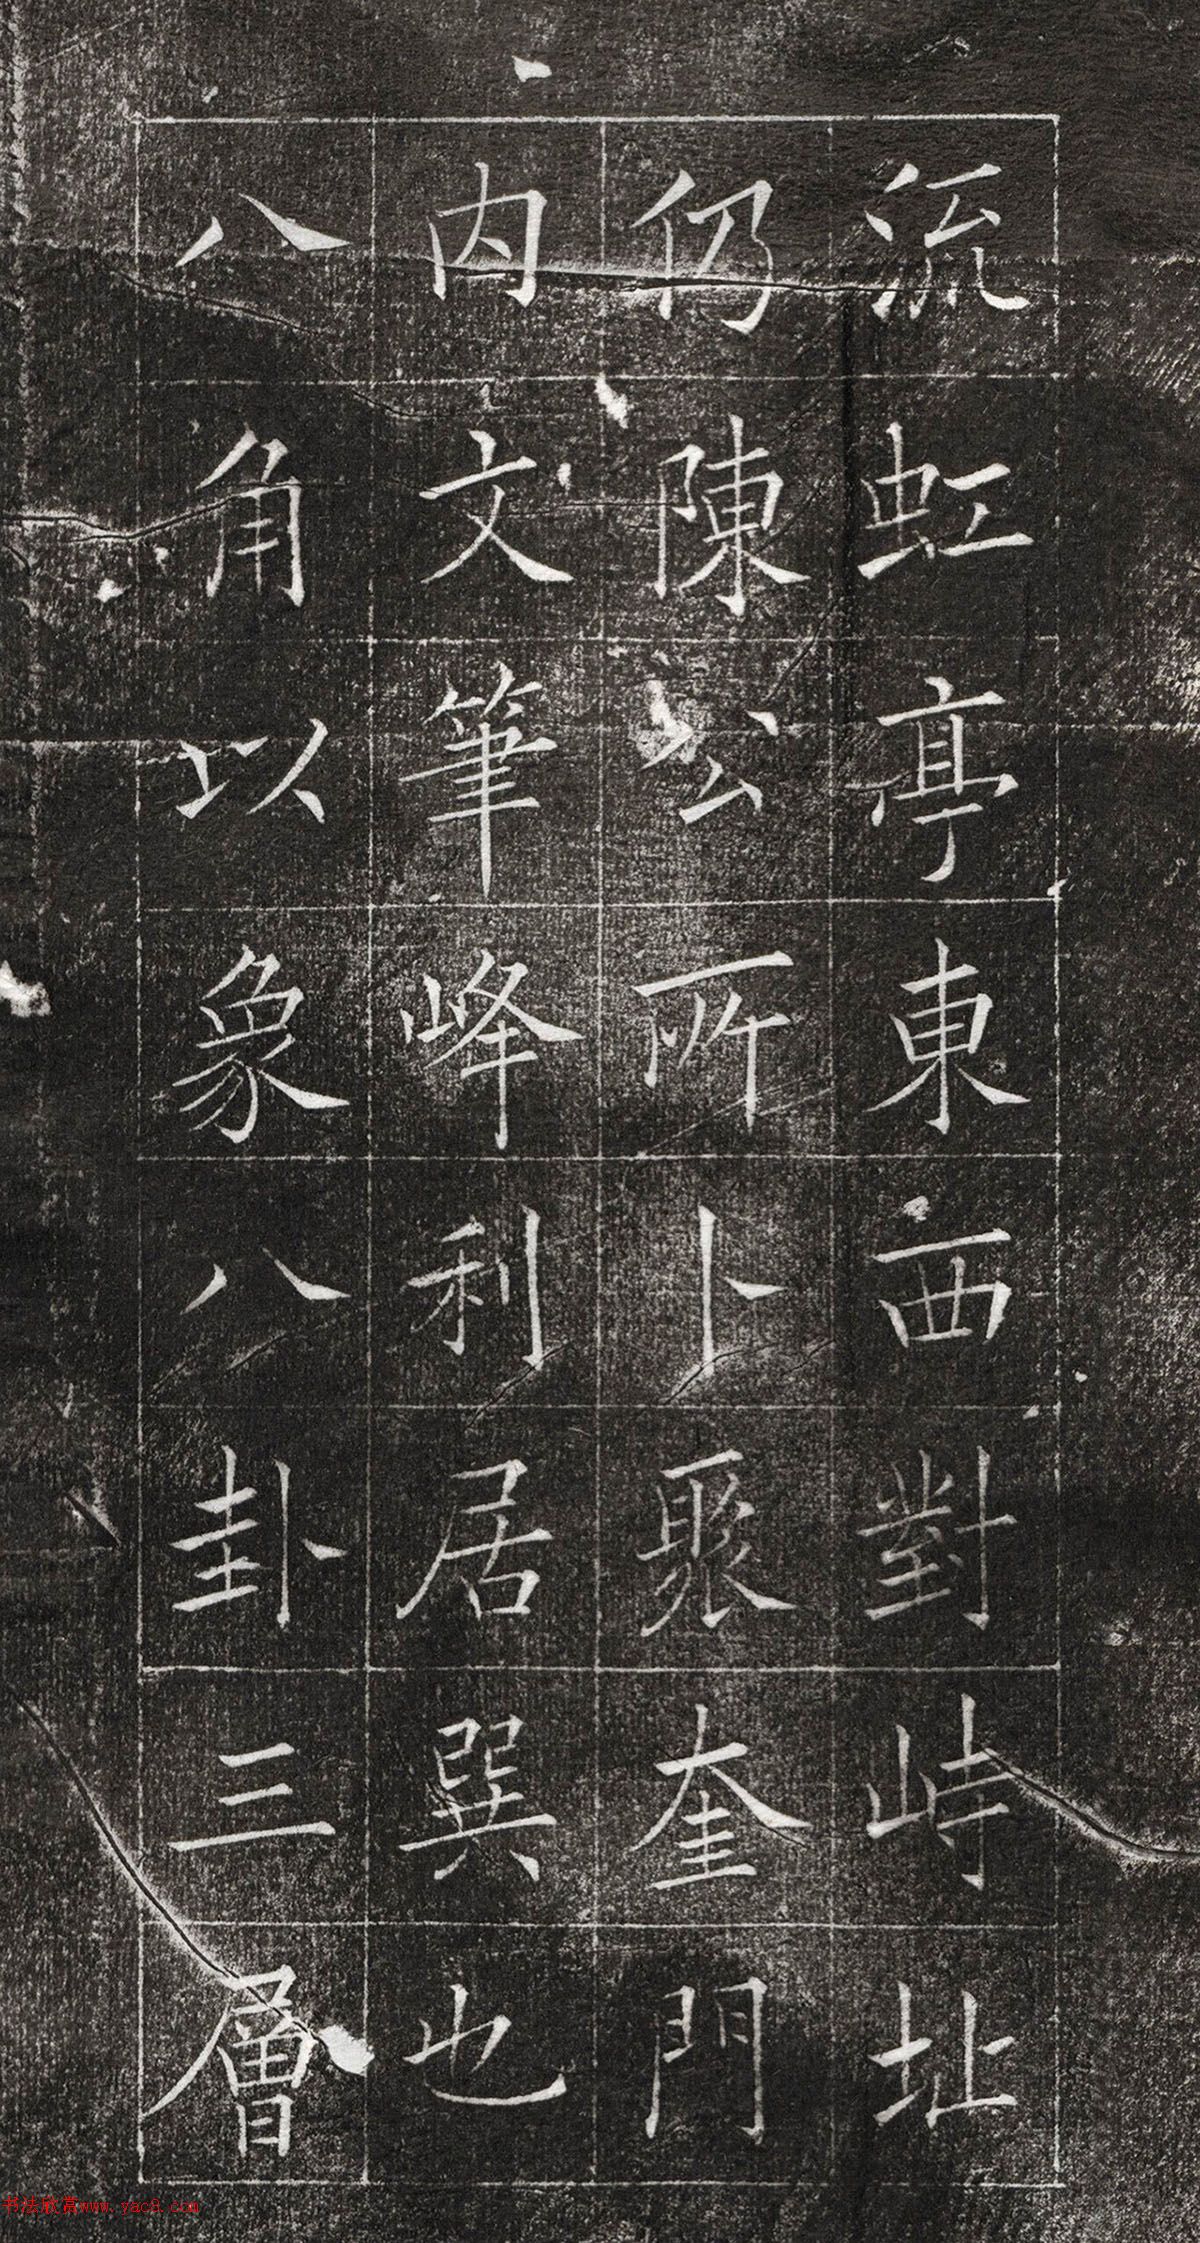 流虹亭東西對峙址
仍陳公所卜聚奎門
内文筆峰利居巽也
八角以象八卦三層
书法欣赏www.yac8.com